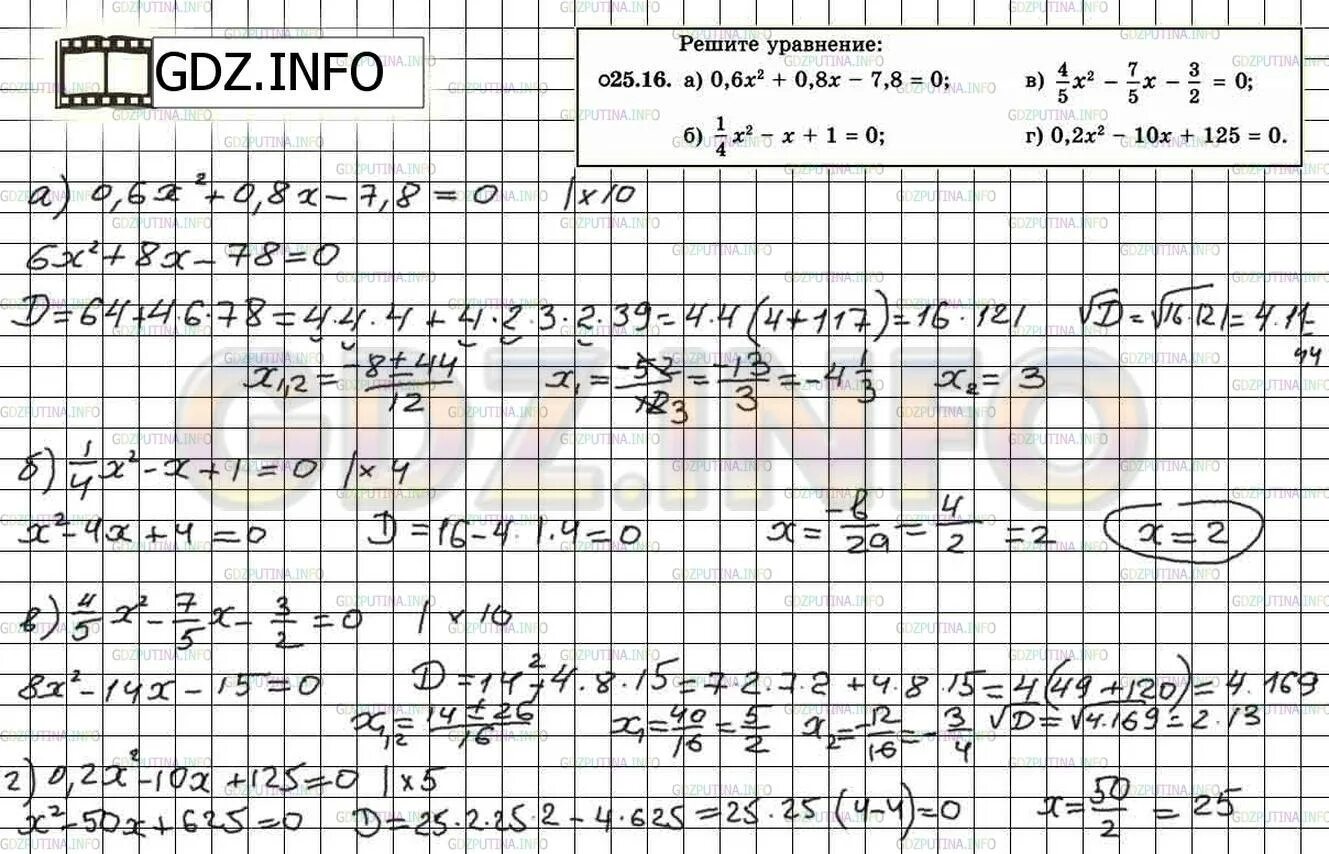 GDZ.INFO
Решите уравнение:
о25.16. а) 0,6x² + 0,8x − 7,8 = 0; в) 4/5 x² − 7/5 x − 3/2 = 0;
б) 1/4 x² − x + 1 = 0; г) 0,2x² − 10x + 125 = 0.
а) 0,6x² + 0,8x − 7,8 = 0 | × 10
6x² + 8x − 78 = 0
D = 64 + 4·6·78 = 4·4·4 + 4·2·3·2·39 = 4·4(4+117) = 16·121 √D = √16·121 = 4·11 = 44
x₁,₂ = −8 ± 44 / 12 x₁ = −52/12 3 = −13/3 = −4 1/3 x₂ = 3
б) 1/4 x² − x + 1 = 0 | × 4
x² − 4x + 4 = 0 D = 16 − 4·1·4 = 0 x = −b/2a = 4/2 = 2 x = 2
в) 4/5 x² − 7/5 x − 3/2 = 0 | × 10
8x² − 14x − 15 = 0 D = 14² + 4·8·15 = 7·2·7·2 + 4·8·15 = 4(49 + 120) = 4·169
x₁,₂ = 14 ± 26 / 16 x₁ = 40/16 = 5/2 x₂ = −12/16 = −3/4 √D = √4·169 = 2·13
г) 0,2x² − 10x + 125 = 0 | × 5
x² − 50x + 625 = 0 D = 25·2·25·2 − 4·625 = 25·25(4−4) = 0 x = 50/2 = 25
GDZ.INFO
GDZPUTINA.INFO